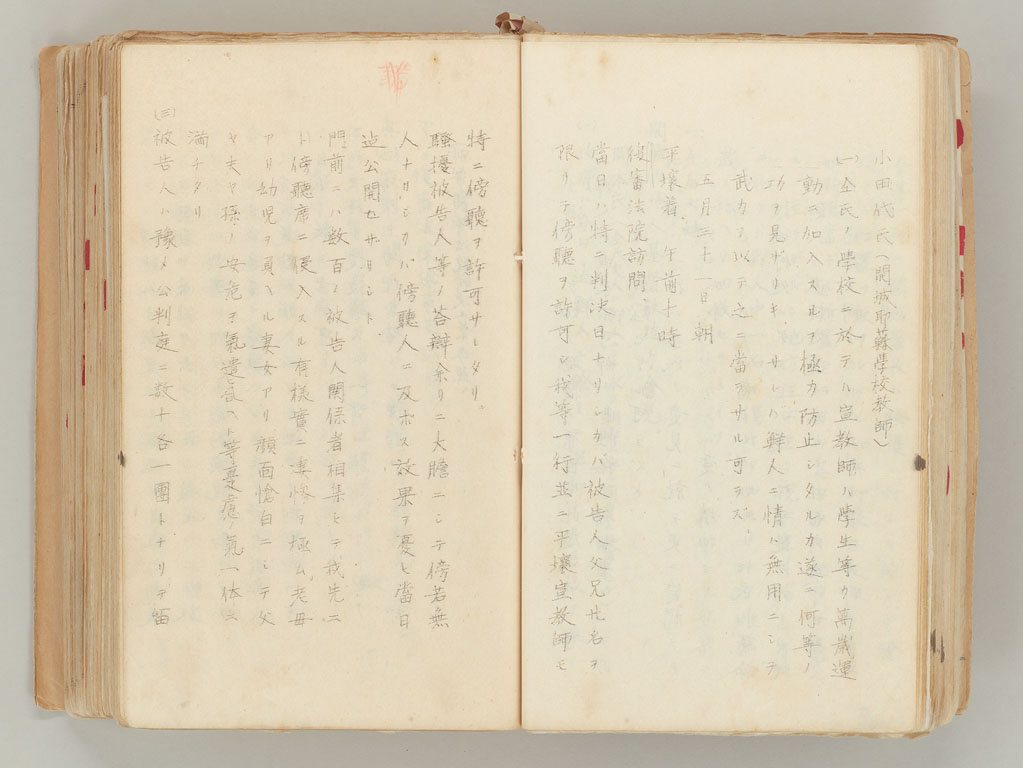 小田代氏(開城耶蘇學校教師)
(一)仝氏ノ學校ニ於テハ宣教師ハ學生等カ萬歳運
動ニ加入スルヲ極力防止シタルカ遂ニ何等ノ
功ヲ見ザリキ サレハ鮮人ニ情ハ無用ニシテ
武力ヲ以テ之ニ當ラサル可ラズ
五月三十一日 朝
平壤着 午前十時
覆審法院訪問
當日ハ特ニ判決日ナリシカバ被告人父兄廿名ヲ
限リテ傍聽ヲ許可シ我等一行並ニ平壤宣教師モ
特ニ傍聽ヲ許可サレタリ。
騒擾被告人等ノ答辯余リニ大膽ニシテ傍若無
人ナリシカバ傍聽人ニ及ホス效果ヲ憂ヒ當日
迠公開セザリシト
門前ニハ数百ノ被告人関係者相集ヒテ我先ニ
ト傍聽席ニ侵入スル有様實ニ凄惨ヲ極ム、老母
アリ幼児ヲ負ヘル妻女アリ顔面愴白ニシテ父
ヤ夫ヤ孫ノ安危ヲ氣遣
氣一体ニ
満チタリ
(三)被告人ハ豫メ公判庭ニ数十各一團トナリテ笛